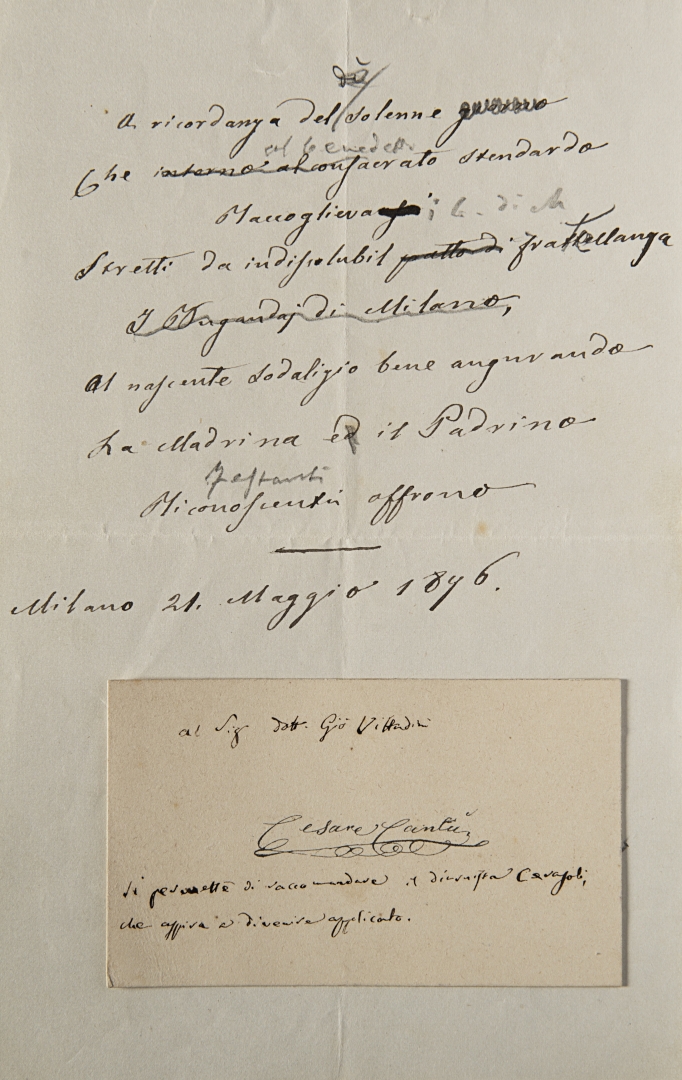 dì
A ricordanza del solenne
col benedetto
Che intorno al consacrato stendardo
Raccoglieva i b. di M
Stretti da indissolubil patto di fratellanza
I Brigandaj di Milano,
Al nascente sodalizio bene augurando
La Madrina ed il Padrino
Festanti
Riconoscenti offrono
Milano 21. Maggio 1876.
al Sig dott. Giò Vittadini
Cesare Cantù
si permette di raccomandare il diurnista Cavajoli,
che aspira a divenire applicato.